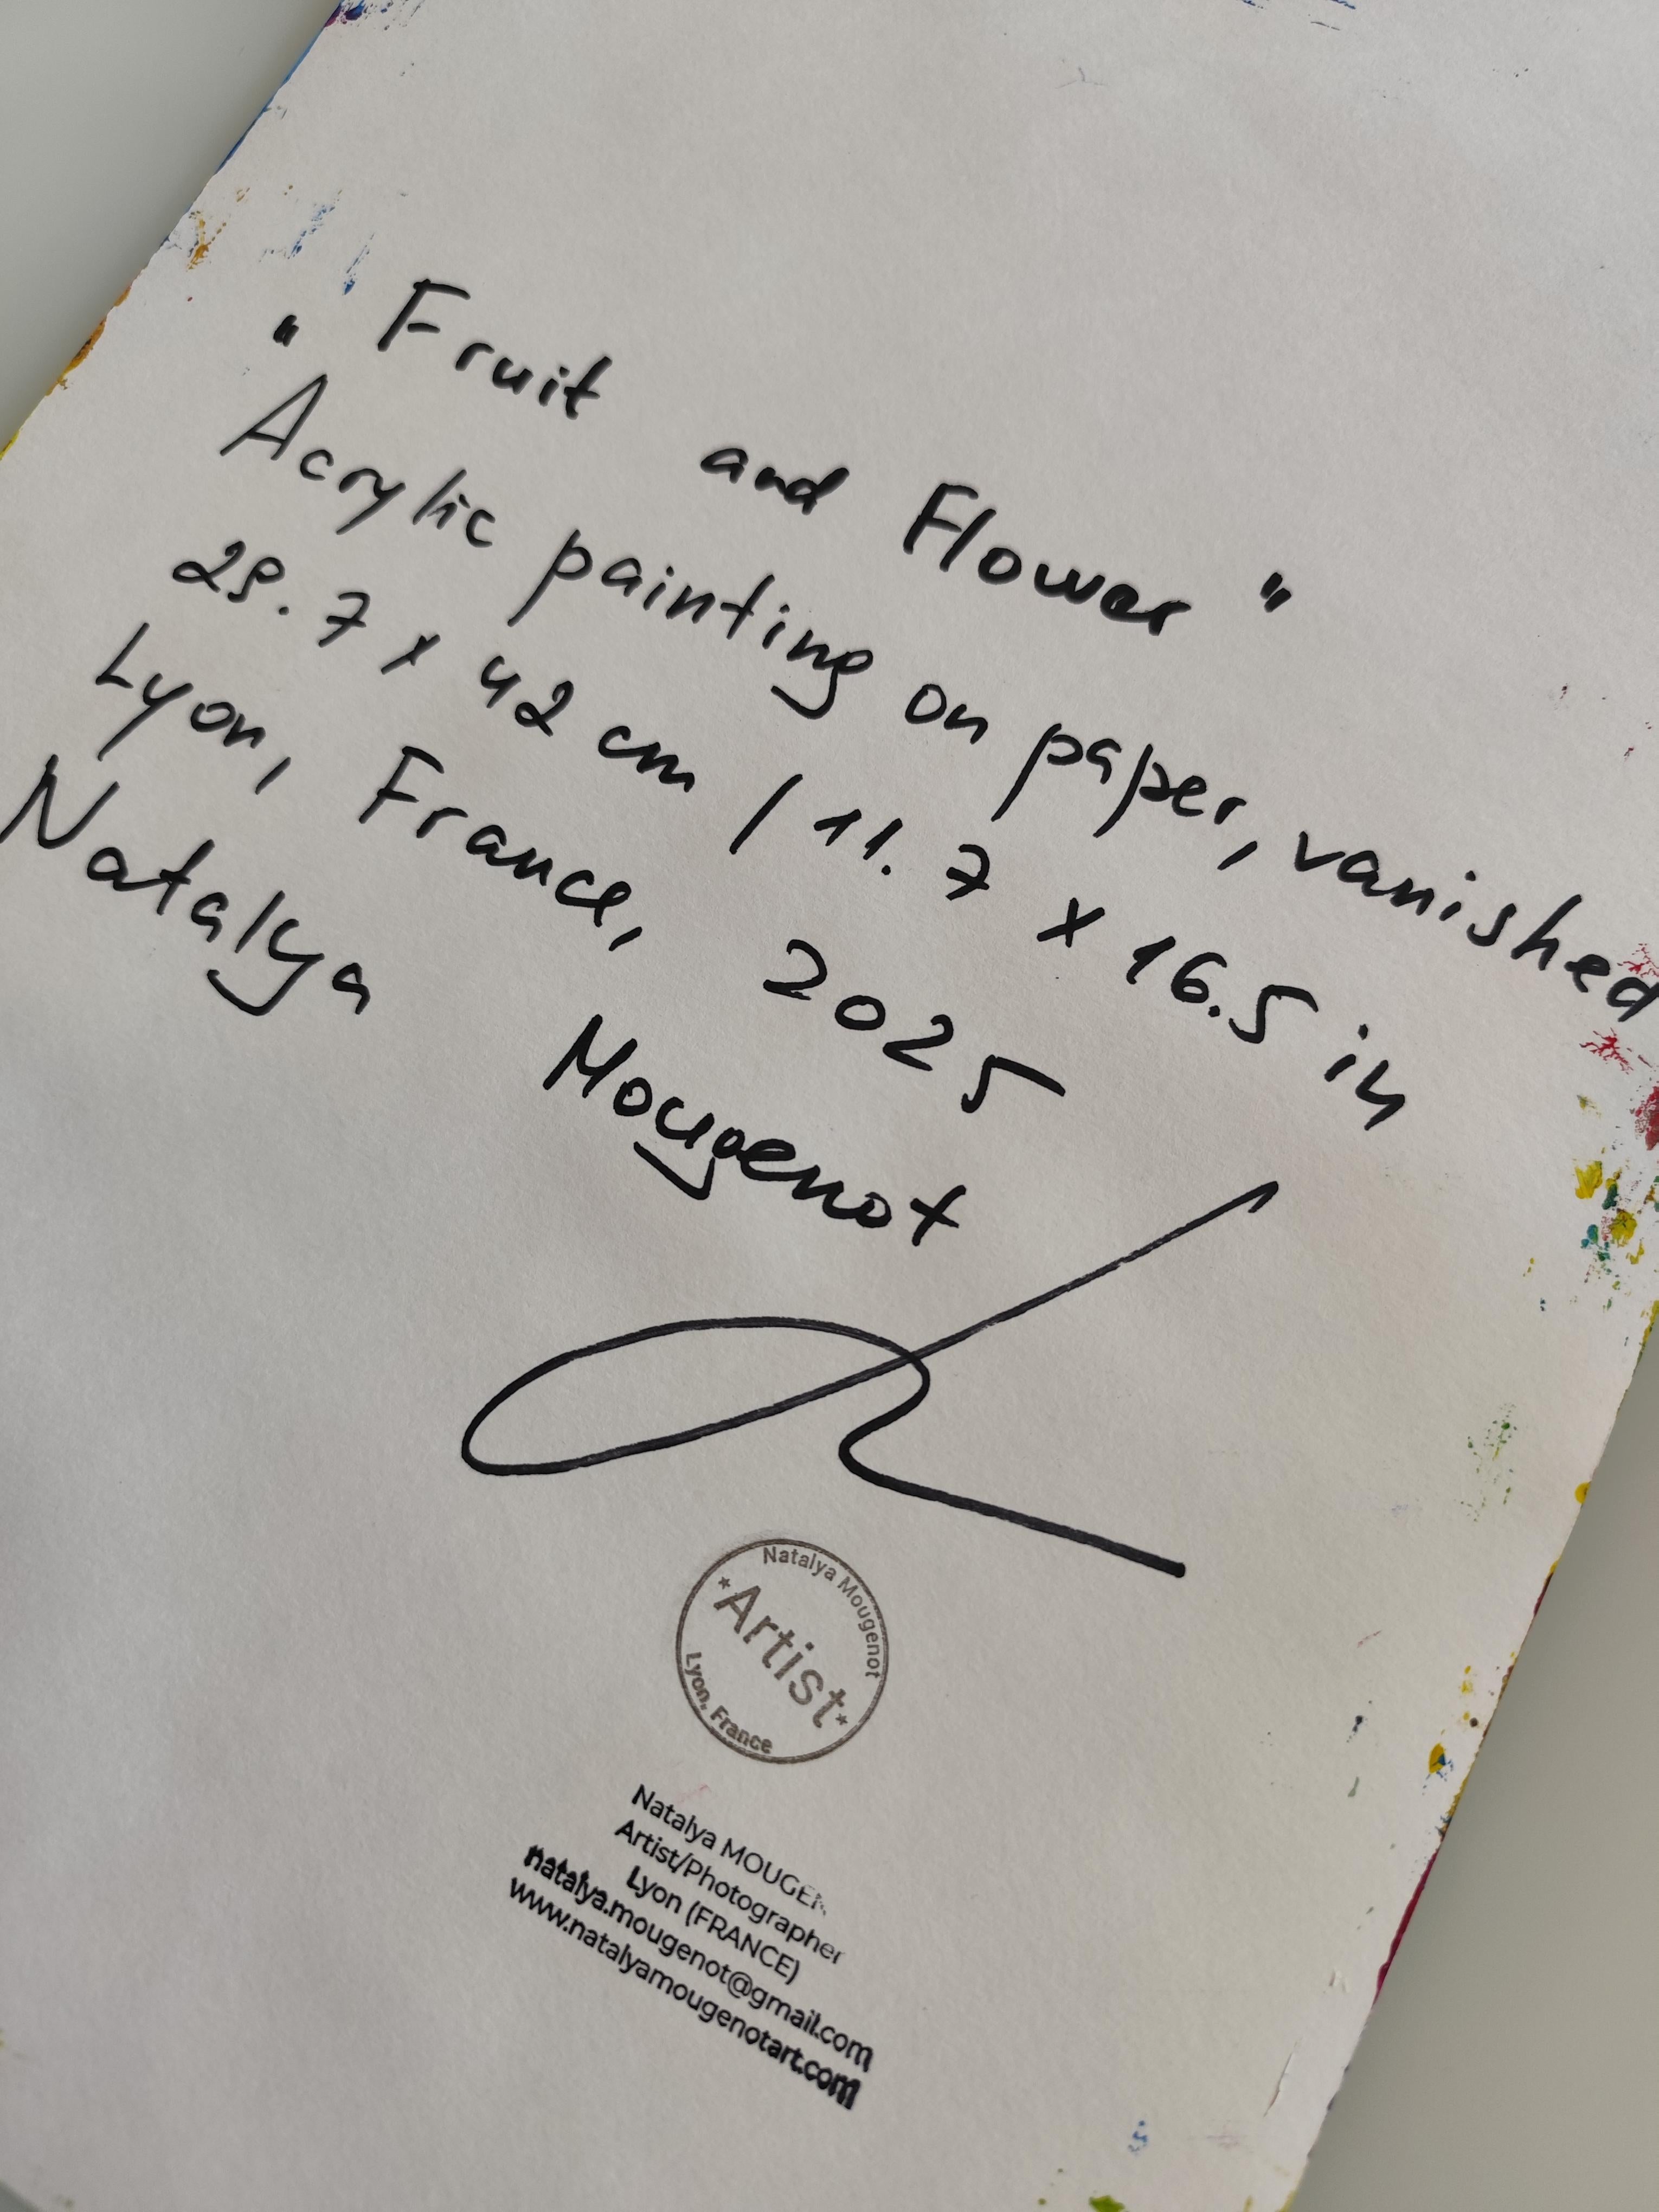 "Fruit and Flower"
Acrylic painting on paper, vanished
29.7 x 42 cm / 11.7 x 16.5 in
Lyon, France, 2025
Natalya Mougenot
Natalya Mougenot
*Artist*
Lyon, France
Natalya MOUGEN
Artist/Photographer
Lyon (FRANCE)
natalya.mougenot@gmail.com
www.natalyamougenotart.com